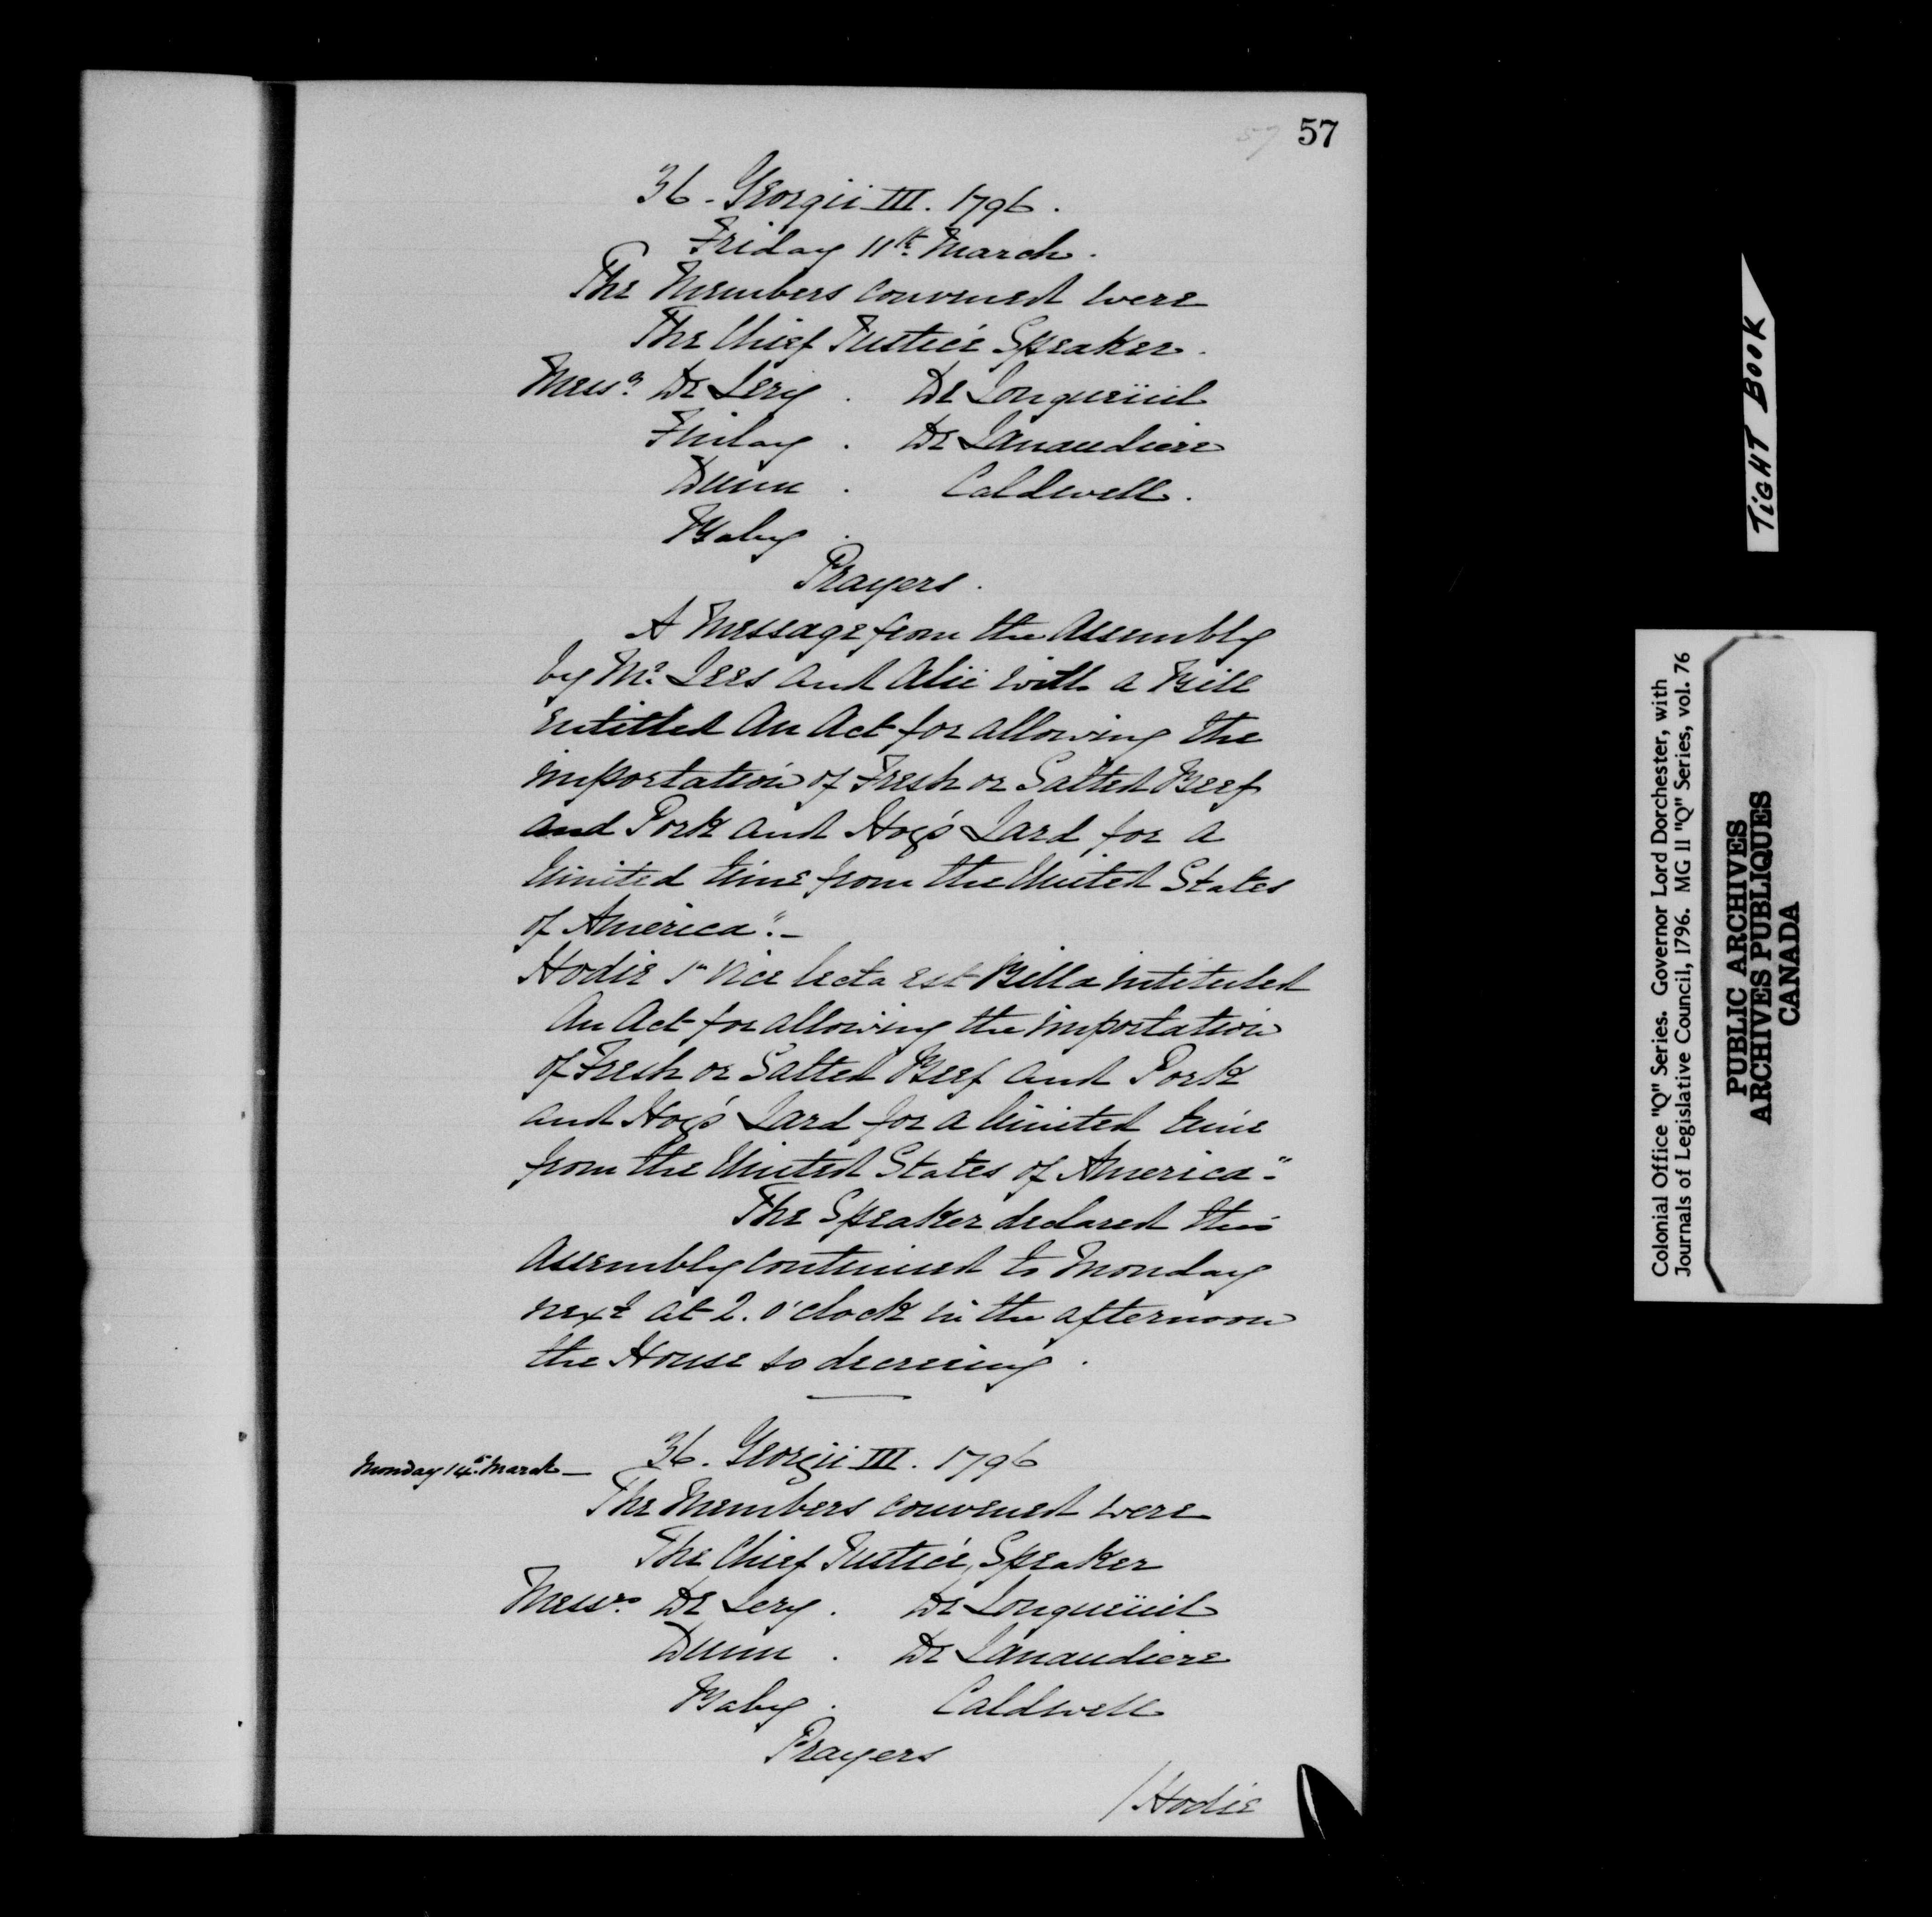 57 57
36. Georgii III. 1796.
Friday 11th March.
The Members convened were
The Chief Justice Speaker.
Messrs De Lery . De Longueüil
Finlay . De Lanaudiere
Dunn . Caldwell.
Baby .
Prayers.
A Message from the Assembly
by Mr. Lees and Alii with a Bill
entitled An Act for allowing the
importation of Fresh or Salted Beef
and Pork and Hog's Lard for a
limited time from the United States
of America".-
Hodie 1a vice lecta est Billa intituled
An Act for allowing the importation
of Fresh or Salted Beef and Pork
and Hog's Lard for a limited time
from the United States of America".
The Speaker declared this
Assembly continued to Monday
next at 2. o'clock in the afternoon
the House so decreeing.
Monday 14th March — 36. Georgii III. 1796
The Members convened were
The Chief Justice, Speaker
Messrs. De Lery . De Longueüil
Dunn . De Lanaudiere
Baby . Caldwell
Prayers
/Hodie
TIGHT BOOK
Colonial Office "Q" Series. Governor Lord Dorchester, with
Journals of Legislative Council, 1796. MG 11 "Q" Series, vol. 76
PUBLIC ARCHIVES
ARCHIVES PUBLIQUES
CANADA